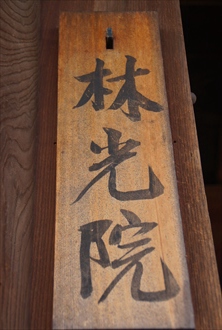 林光院